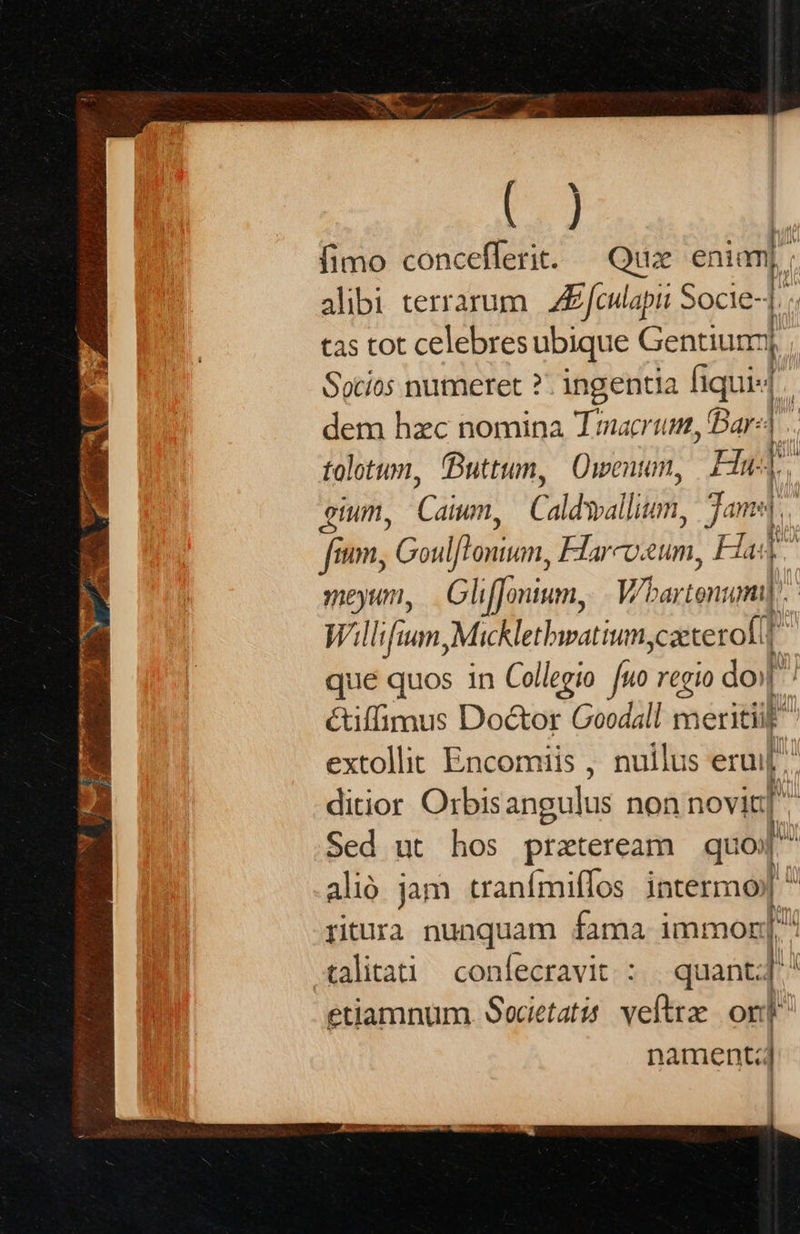 ( )
ſimo conceſſerit. Quæ enim
alibi terrarum Æſculapii Socie-
tas tot celebres ubique Gentium
Socios numeret ? ingentia ſiqui-
dem hæc nomina Tinacrum, Bar-
tolotum, Buttum, Owenum, Hu-
gium, Caium, Caldwallium, Jame-
ſium, Goulſtonium, Harvæum, Ha-
meyum, Gliſſonium, Whartonum
Williſium, Micklethwatium, cæteroſ-
que quos in Collegio ſuo regio do-
ctiſſimus Doctor Goodall meritii
extollit Encomiis, nullus erui
ditior Orbis angulus non novit
Sed ut hos præteream quo
aliò jam tranſmiſſos intermo
ritura nunquam fama immor
talitati conſecravit : quanta
etiamnum Societatis veſtræ or
namenta